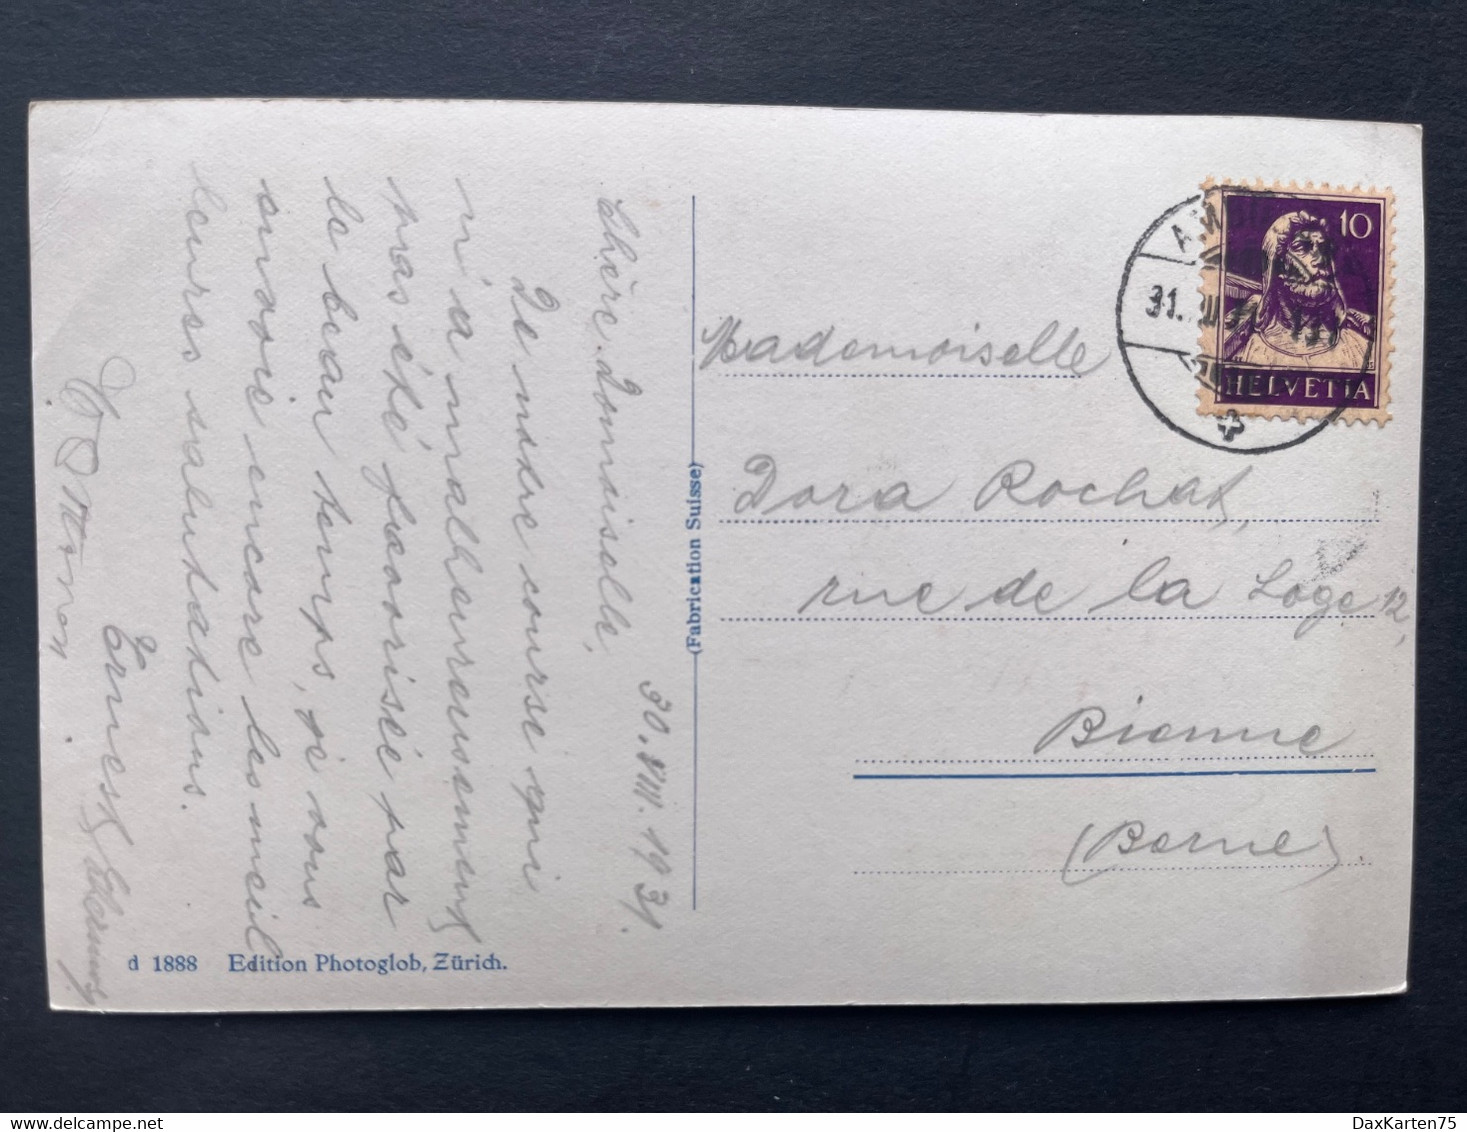 30. VIII. 1931.
Chère Domoiselle,
De nôtre course qui
n'a malheureusement
pas été favorisée par
le beau temps, je vous
envoie encore les meil
leures salutations.
Ernest
d 1888 Edition Photoglob, Zürich.
(Fabrication Suisse)
10
HELVETIA
31.
Mademoiselle
Dora Rochat,
rue de la Loge 12,
Bienne
(Berne)
DaxKarten75